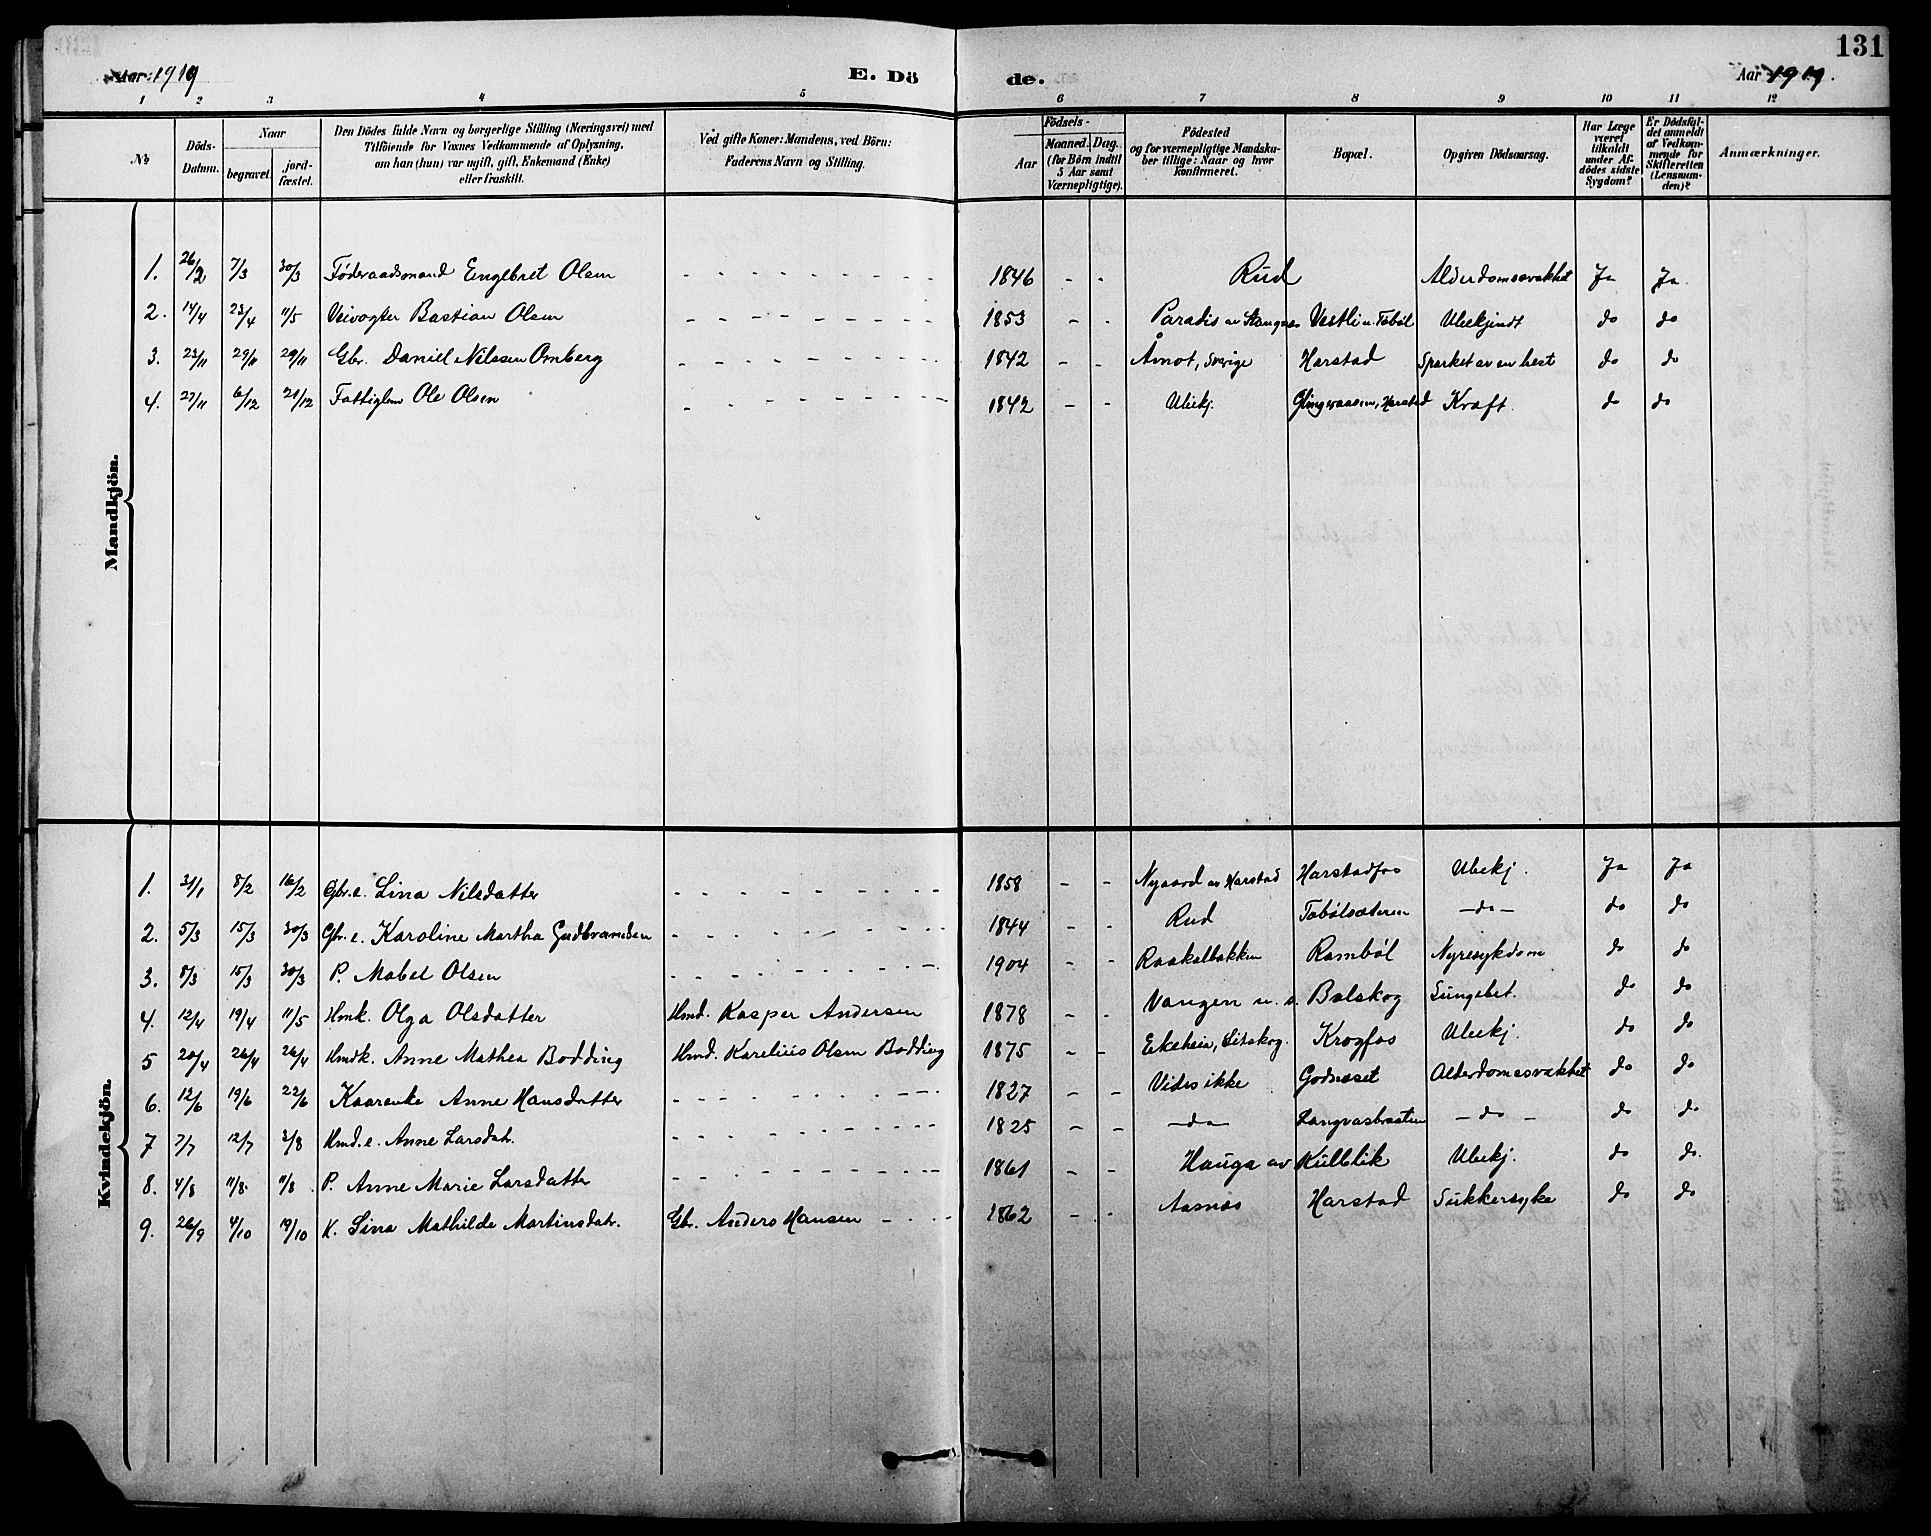 Aar 1919 E. Döde. Aar 1919. 131
1 2 3 4 5 6 7 8 9 10 11 12
№ Döds-Datum. Naar begravet. jordfæstet. Den Dödes fulde Navn og borgerlige Stilling (Næringsvei) med Tilföiende for Voxnes Vedkommende af Oplysning, om han (hun) var ugift, gift, Enkemand (Enke) eller fraskilt. Ved gifte Koner: Mandens, ved Börn: Faderens Navn og Stilling. Födsels- Aar Maaned. Dag. (for Börn indtil 5 Aar samt Værnepligtige). Födested og for værnepligtige Mandskaber tillige: Naar og hvor konfirmeret. Bopæl. Opgiven Dödsaarsag. Har Læge været tilkaldt under Afdödes sidste Sygdom? Er Dödsfaldet anmeldt af Vedkommende for Skifteretten (Lensmanden)? Anmærkninger.
Mandkjön.
1. 26/2 7/3 30/3 Føderaadsmand Engebret Olsen - - - 1846 - - Rud Alderdomssvakhet Ja Ja.
2. 14/4 23/4 11/5 Veivogter Bastian Olsen - - - 1853 - - Paradis av Stangnes Vestli u. Tobøl Ubekjendt do do
3. 23/11 29/11 29/11 Gbr. Daniel Nilssen Omberg - - - 1842 - - Åmot, Sverige Harstad Sparket av en hest do do
4. 27/11 6/12 21/12 Fattiglem Ole Olsen - - - 1842 - - Ubekj. Harstad Kræft. do do
Kvindekjön.
1. 31/1 8/2 16/2 Gbr.e. Lina Nilsdatter - - - 1858 - - Nygaard av Harstad Harstadfos Ubekj. Ja Ja
2. 5/3 15/3 30/3 Gbr.e. Karoline Martha Gudbrandsen - - - 1844 - - Rud Tobølsæteren -do- do do
3. 8/3 15/3 30/3 P. Mabel Olsen - - - 1904 - - Raakalbakken Rambøl Nyresykdom do do
4. 12/4 19/4 11/5 Hmk. Olga Olsdatter Hmd. Kasper Andersen 1878 - - Vangen u. Bolskog do do
5 20/4 26/4 26/4 Hmdk. Anne Mathea Bodding Hmd. Karelius Olsen Bodding 1875 - - Ekeheia, Eitskog. Krogfos Ubekj. do do
6. 12/6 19/6 22/6 Kaarenke Anne Hansdatter - - - 1827 - - Vides ikke Godnæset Alderdomssvakhet do do
7 7/7 12/7 3/8 Hmd.e. Anne Larsdatr. - - - 1825 - - -do- Langvasbraaten -do- do do
8. 4/8 11/8. 11/8. P. Anne Marie Larsdatter - - - 1861 - - Hauga av Kulblik Ubekj. do do.
9. 26/9 4/10 19/10 K. Lina Mathilde Martinsdatr. Gbr. Anders Hansen - - - 1862 - - Aasnes Harstad Sukkersyke do do